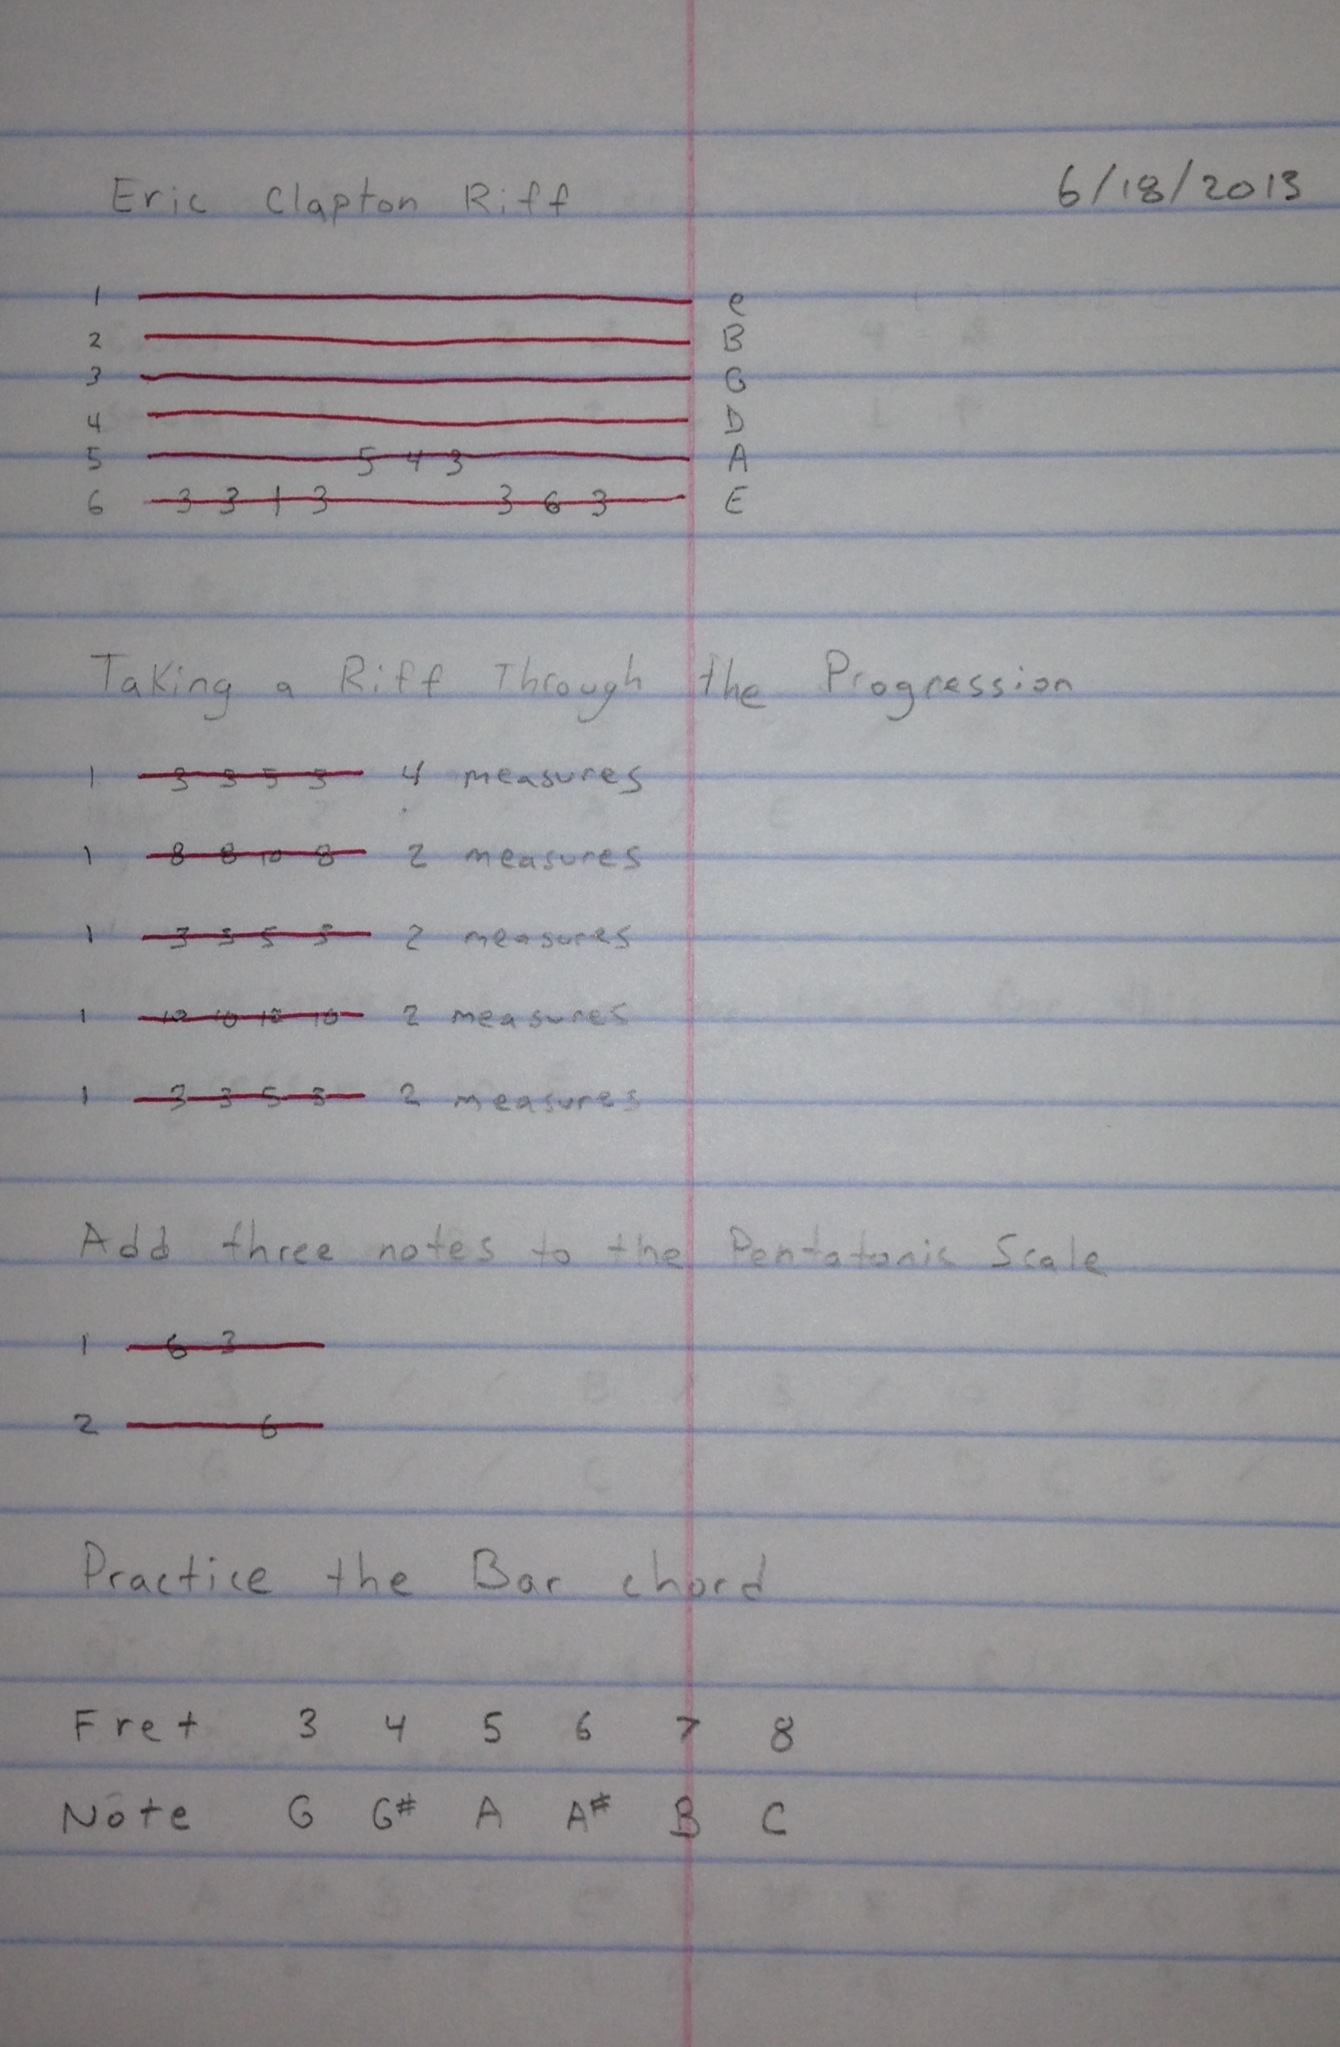 Eric Clapton Riff 6/18/2013
1 e
2 B
3 G
4 D
5 5 4 3 A
6 3 3 1 3 3 6 3 E
Taking a Riff Through the Progression
1 3 3 5 3 4 measures
1 8 8 10 8 2 measures
1 3 3 5 3 2 measures
1 10 10 12 10 2 measures
1 3 3 5 3 2 measures
Add three notes to the Pentatonic Scale
1 6 3
2 6
Practice the Bar chord
Fret 3 4 5 6 7 8
Note G G# A A# B C